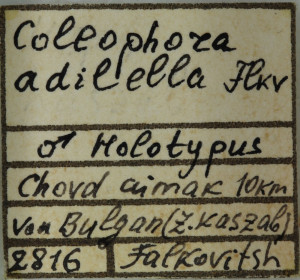 Coleophora
adilella Flkv
♂ Holotypus
Chovd aimak 10km
von Bulgan (Z. Kaszab)
2816 Falkovitsh